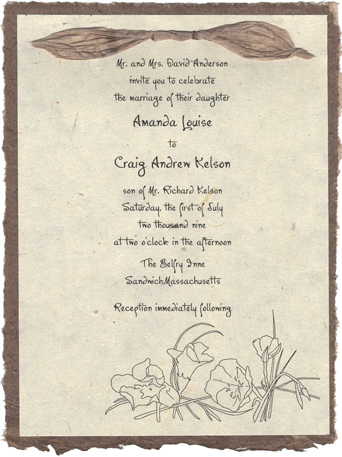 Mr. and Mrs. David Anderson
invite you to celebrate
the marriage of their daughter
Amanda Louise
to
Craig Andrew Kelson
son of Mr. Richard Kelson
Saturday, the first of July
two thousand nine
at two o'clock in the afternoon
The Belfry Inne
SandwichMassachusetts
Reception immediately following